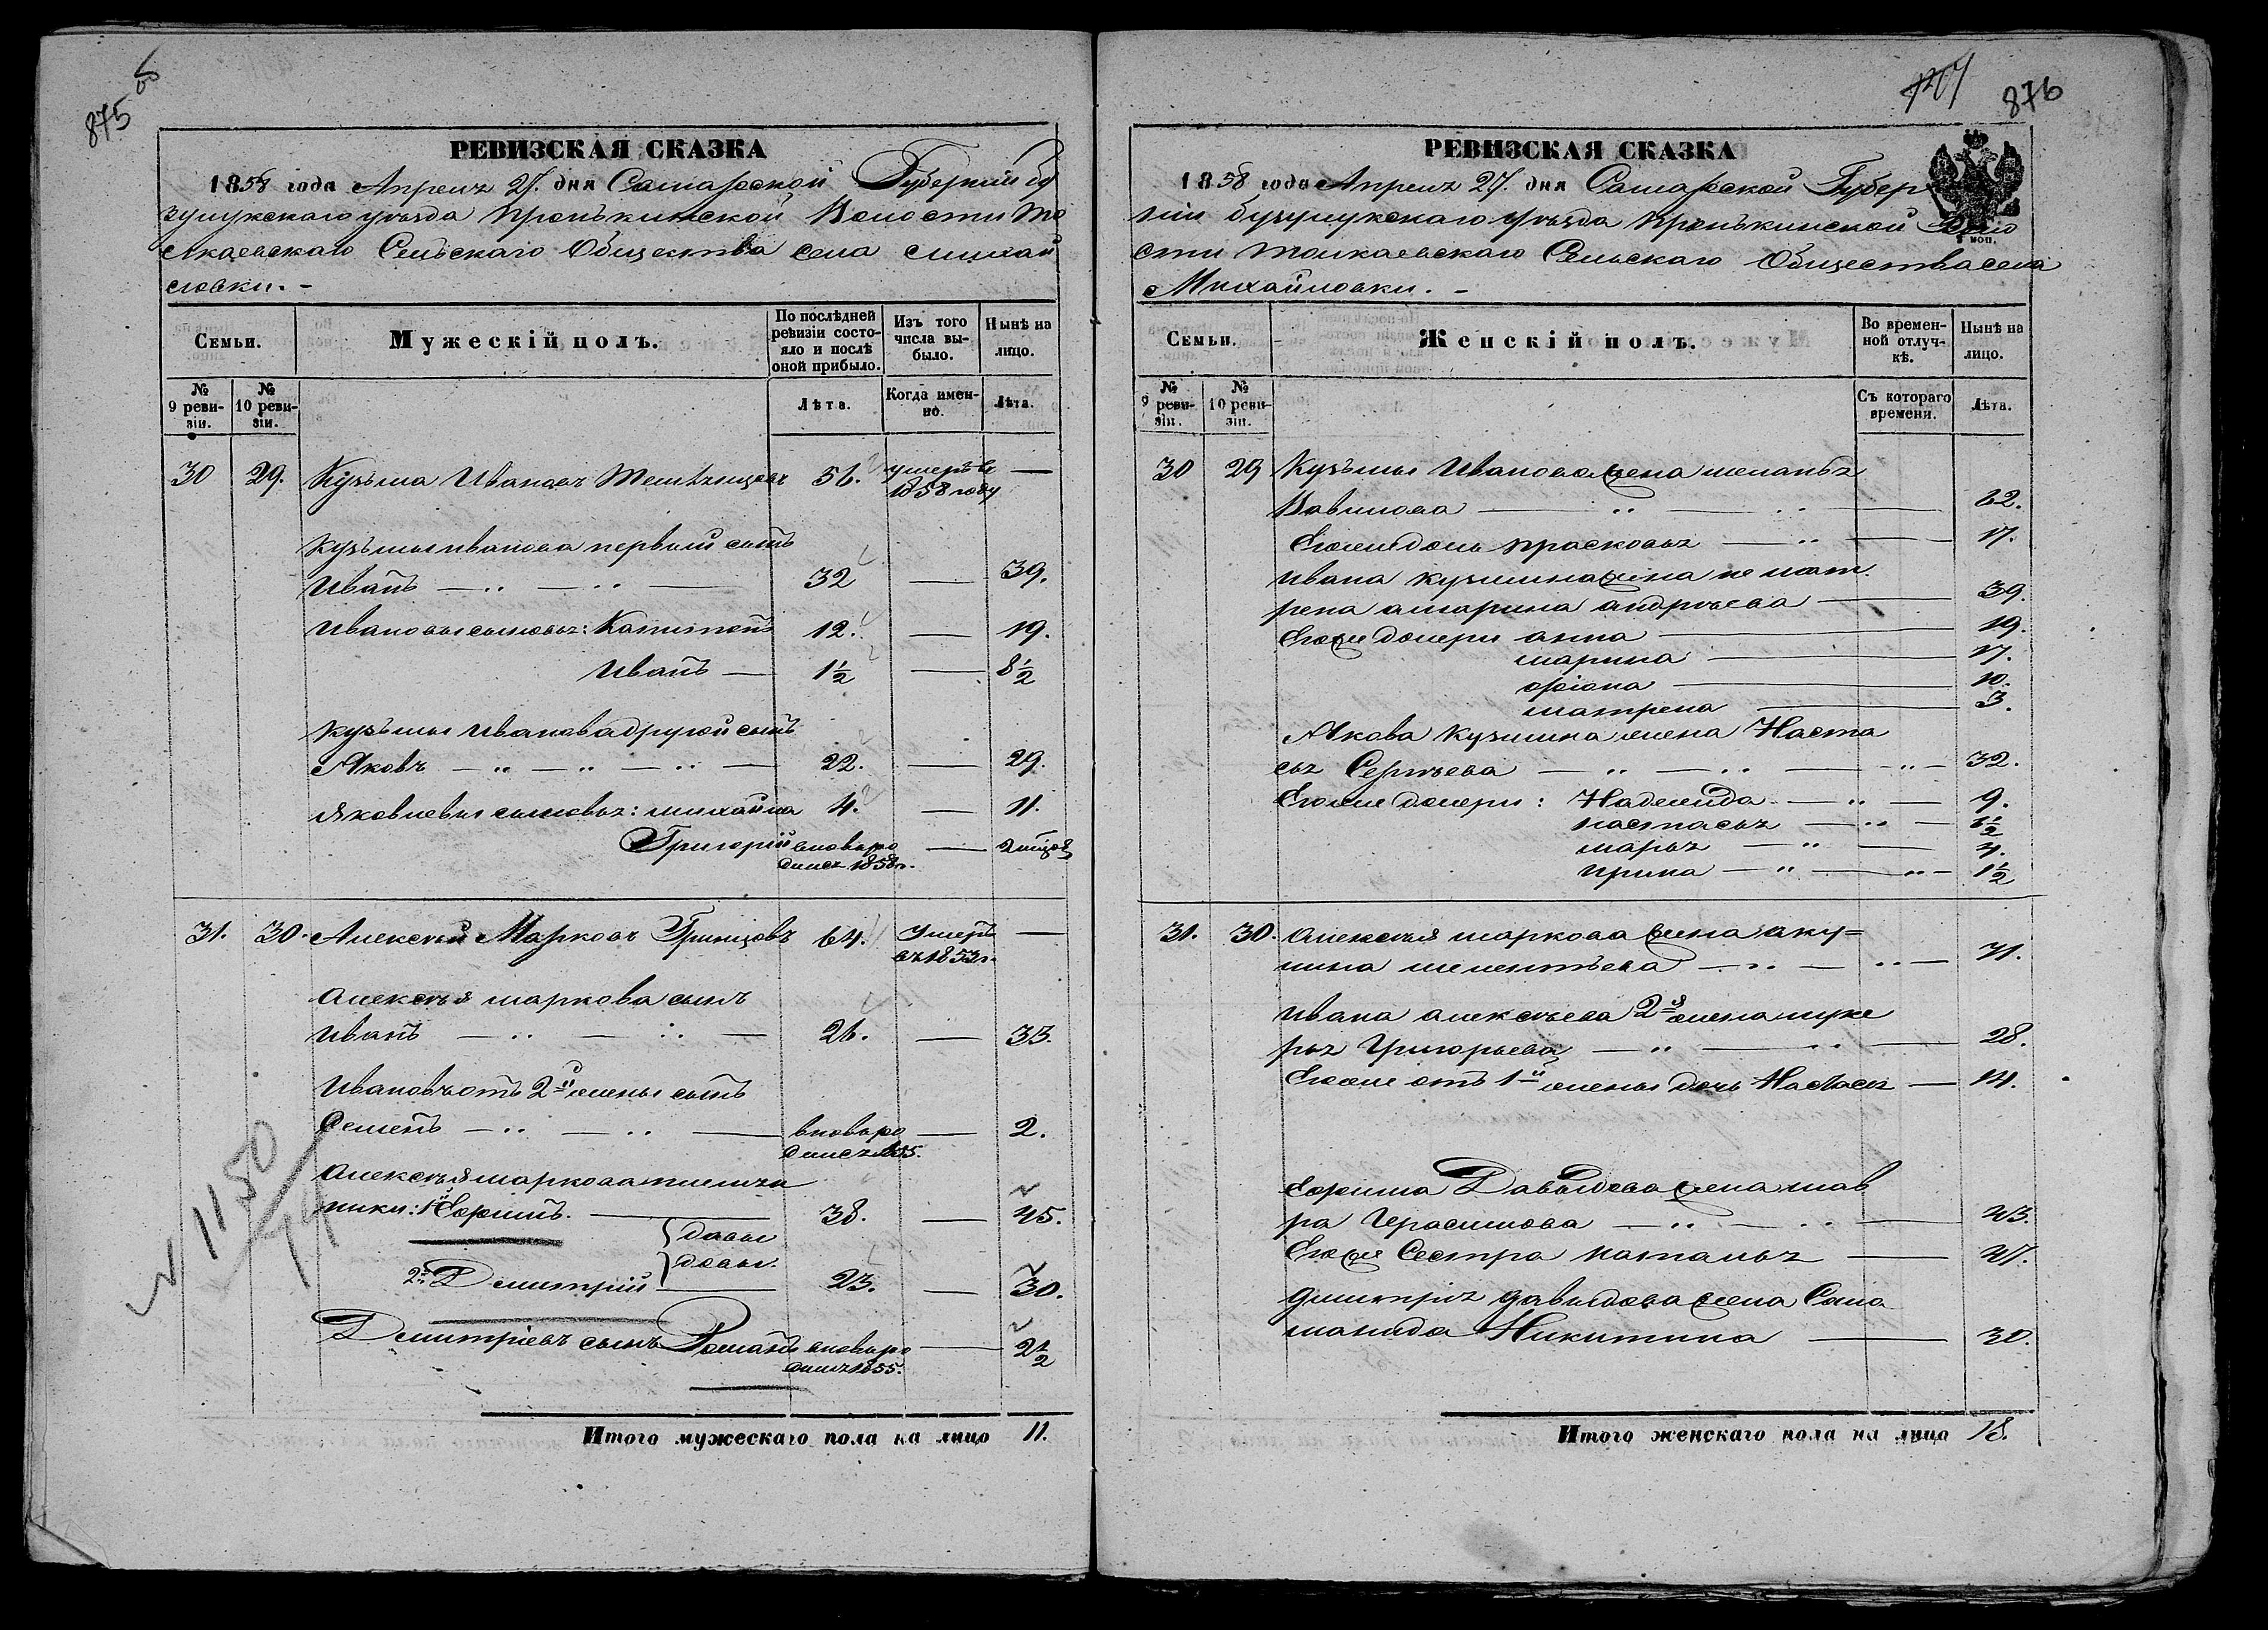 875 об
РЕВИЗСКАЯ СКАЗКА
1858 года Апреля 27. дня Самарской Губернии Бу
зулукскаго уѣзда Пронькинской Волости То
лкаевскаго Сельскаго Общества села Михай
ловки. -
Семьи.
Мужескій полъ.
По послѣдней ревизіи состояло и послѣ оной прибыло.
Изъ того числа выбыло.
Нынѣ на лицо.
№ 9 ревизіи.
№ 10 ревизіи.
Лѣта.
Когда именно.
Лѣта.
30 29. Кузьма Ивановъ 56. умеръ в —
1858 году
Кузьмы Иванова первый сынъ
Иванъ — 32 — 39.
Ивановы сыновья: Капитонъ 12. — 19.
Иванъ — 1½ — 8½
Кузьмы Иванова другой сынъ
Яковъ — 22. — 29.
Яковлевы сыновья: Михайла 4. — 11.
Григорій вновь ро —
дился 1858 г.
31. 30. Алексѣй Марковъ Гринцовъ 64. Умеръ —
въ 1853 г.
Алексѣя Маркова сынъ
Иванъ — 26. — 33.
Ивановъ отъ 2й жены сынъ
Семенъ — вновь ро — 2.
дился 1855.
Алексѣя Маркова племян
ники: 1й Ефимъ. — 38. — 45.
Давы
довы.
2й Дмитрій — 23. — 30.
Дмитріевъ сынъ Романъ вновь ро — 2½
дился 1855.
N 1150
Итого мужескаго пола на лицо 11.
876
РЕВИЗСКАЯ СКАЗКА
1858 года Апреля 27. дня Самарской Губер
ніи Бузулукскаго Уѣзда Пронькинской Воло
сти Толкаевскаго Сельскаго Общества села
Михайловки. -
Семьи.
Женскій полъ.
Во временной отлучкѣ.
Нынѣ на лицо.
№ 9 ревизіи.
№ 10 ревизіи.
Съ котораго времени.
Лѣта.
30 29 Кузьмы Иванова жена Меланья
Вавилова — 62.
Егоже дочь Прасковья — 17.
Ивана Кузмина жена не Мат
рена а Марина Андрѣева — 39.
Егоже дочери Анна — 19.
Марина — 17.
Фіона — 10.
Матрена — 3.
Якова Кузмина жена Наста
сья Сергѣева — 32.
Егоже дочери: Надежда — 9.
Настасья — 6½
Марья — 4.
Ирина — 1½
31. 30. Алексѣя Маркова жена Аку=
лина Мелентьева — 71.
Ивана Алексѣева 2я жена Луке
рья Григорьева — 28.
Егоже отъ 1й жены дочь Настасья — 14.
Ефима Давыдова жена Мав
ра Герасимова — 43.
Егоже Сестра Наталья — 27.
Дмитрія Давыдова жена Соло
монида Никитина — 30.
Итого женскаго пола на лицо 18.